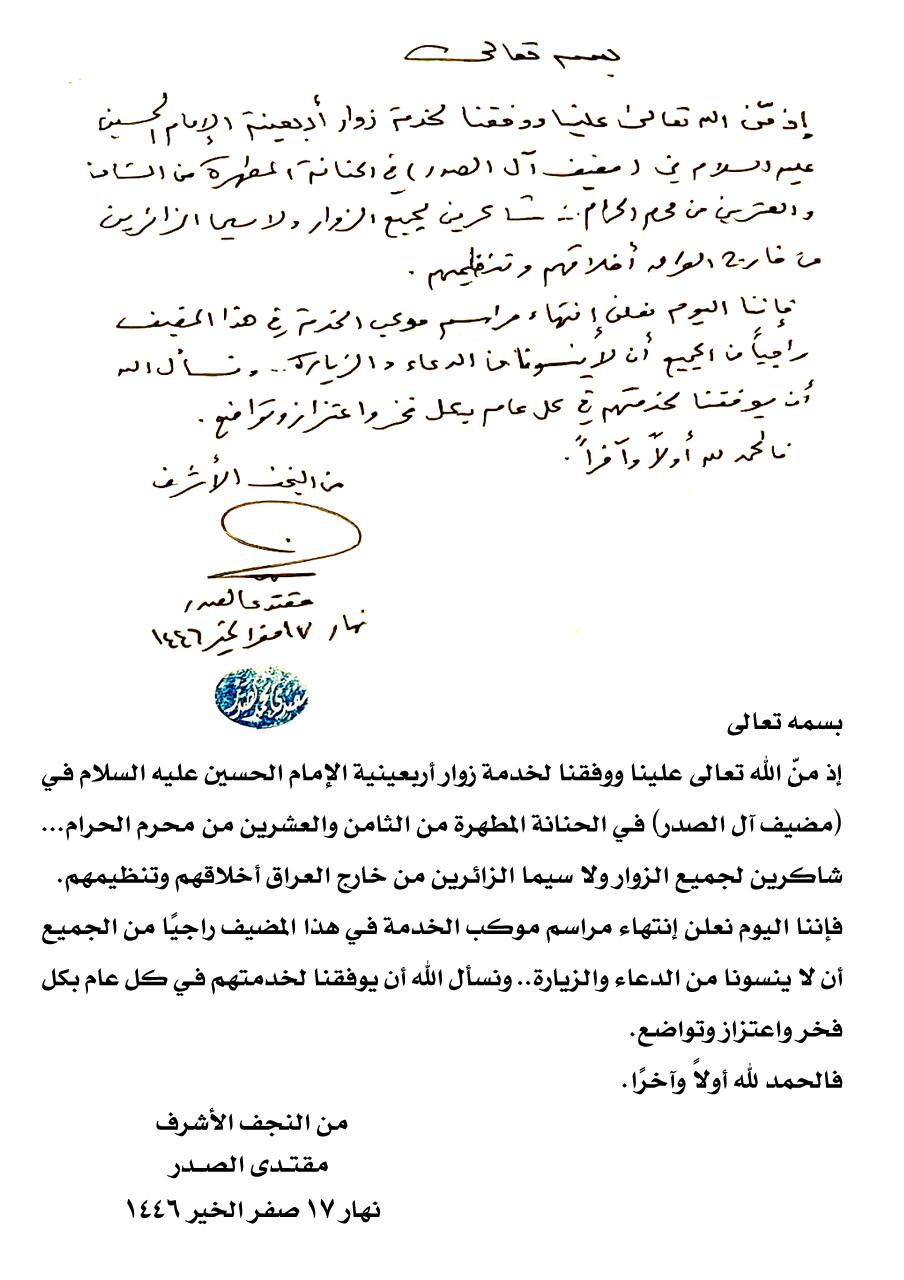 بسمه تعالى
إذ منّ الله تعالى علينا ووفقنا لخدمة زوار أربعينية الإمام الحسين
عليه السلام في (مضيف آل الصدر) في الحنانة المطهرة من الثامن
والعشرين من محرم الحرام... شاكرين لجميع الزوار ولا سيما الزائرين
من خارج العراق أخلاقهم وتنظيمهم.
فإننا اليوم نعلن إنتهاء مراسم موكب الخدمة في هذا المضيف
راجياً من الجميع أن لا ينسونا من الدعاء والزيارة.. ونسأل الله
أن يوفقنا لخدمتهم في كل عام بكل فخر واعتزاز وتواضع.
فالحمد لله أولاً وآخراً.
من النجف الأشرف
مقتدى الصدر
نهار ١٧ صفر الخير ١٤٤٦
بسمه تعالى
إذ منّ الله تعالى علينا ووفقنا لخدمة زوار أربعينية الإمام الحسين عليه السلام في
(مضيف آل الصدر) في الحنانة المطهرة من الثامن والعشرين من محرم الحرام...
شاكرين لجميع الزوار ولا سيما الزائرين من خارج العراق أخلاقهم وتنظيمهم.
فإننا اليوم نعلن إنتهاء مراسم موكب الخدمة في هذا المضيف راجيًا من الجميع
أن لا ينسونا من الدعاء والزيارة.. ونسأل الله أن يوفقنا لخدمتهم في كل عام بكل
فخر واعتزاز وتواضع.
فالحمد لله أولاً وآخرًا.
من النجف الأشرف
مقتدى الصدر
نهار ١٧ صفر الخير ١٤٤٦